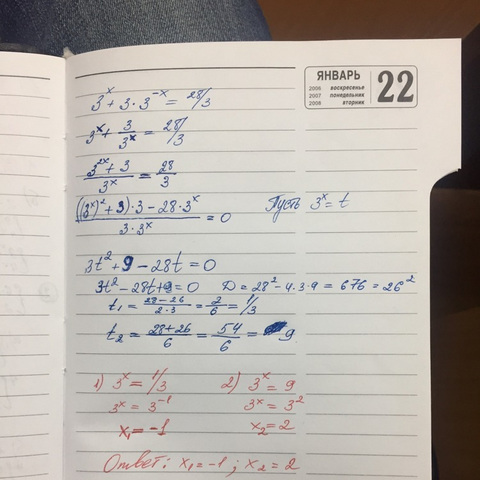 ЯНВАРЬ 22
2006 воскресенье
2007 понедельник
2008 вторник
3^x + 3·3^-x = 28/3
3^x + 3/3^x = 28/3
(3^2x + 3)/3^x = 28/3
(((3^x)^2 + 3)·3 - 28·3^x)/(3·3^x) = 0 Пусть 3^x = t
3t^2 + 9 - 28t = 0
3t^2 - 28t + 9 = 0 D = 28^2 - 4·3·9 = 676 = 26^2
t₁ = (28-26)/(2·3) = 2/6 = 1/3
t₂ = (28+26)/6 = 54/6 = 9
1) 3^x = 1/3 2) 3^x = 9
3^x = 3^-1 3^x = 3^2
x₁ = -1 x₂ = 2
Ответ: x₁ = -1 ; x₂ = 2